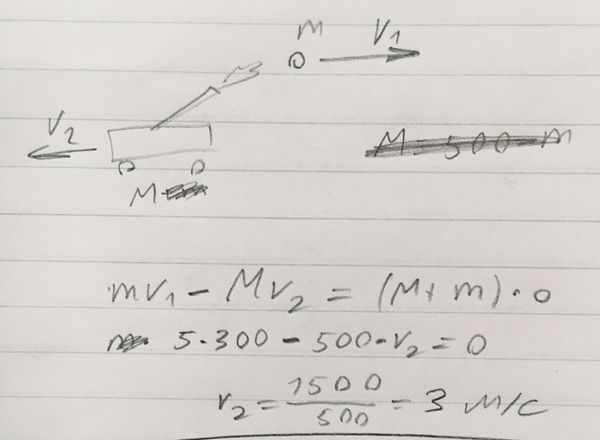 m V₁
V₂
M = 500 - m
M
mv₁ - Mv₂ = (M + m) · 0
5·300 - 500·v₂ = 0
v₂ = 1500/500 = 3 м/с